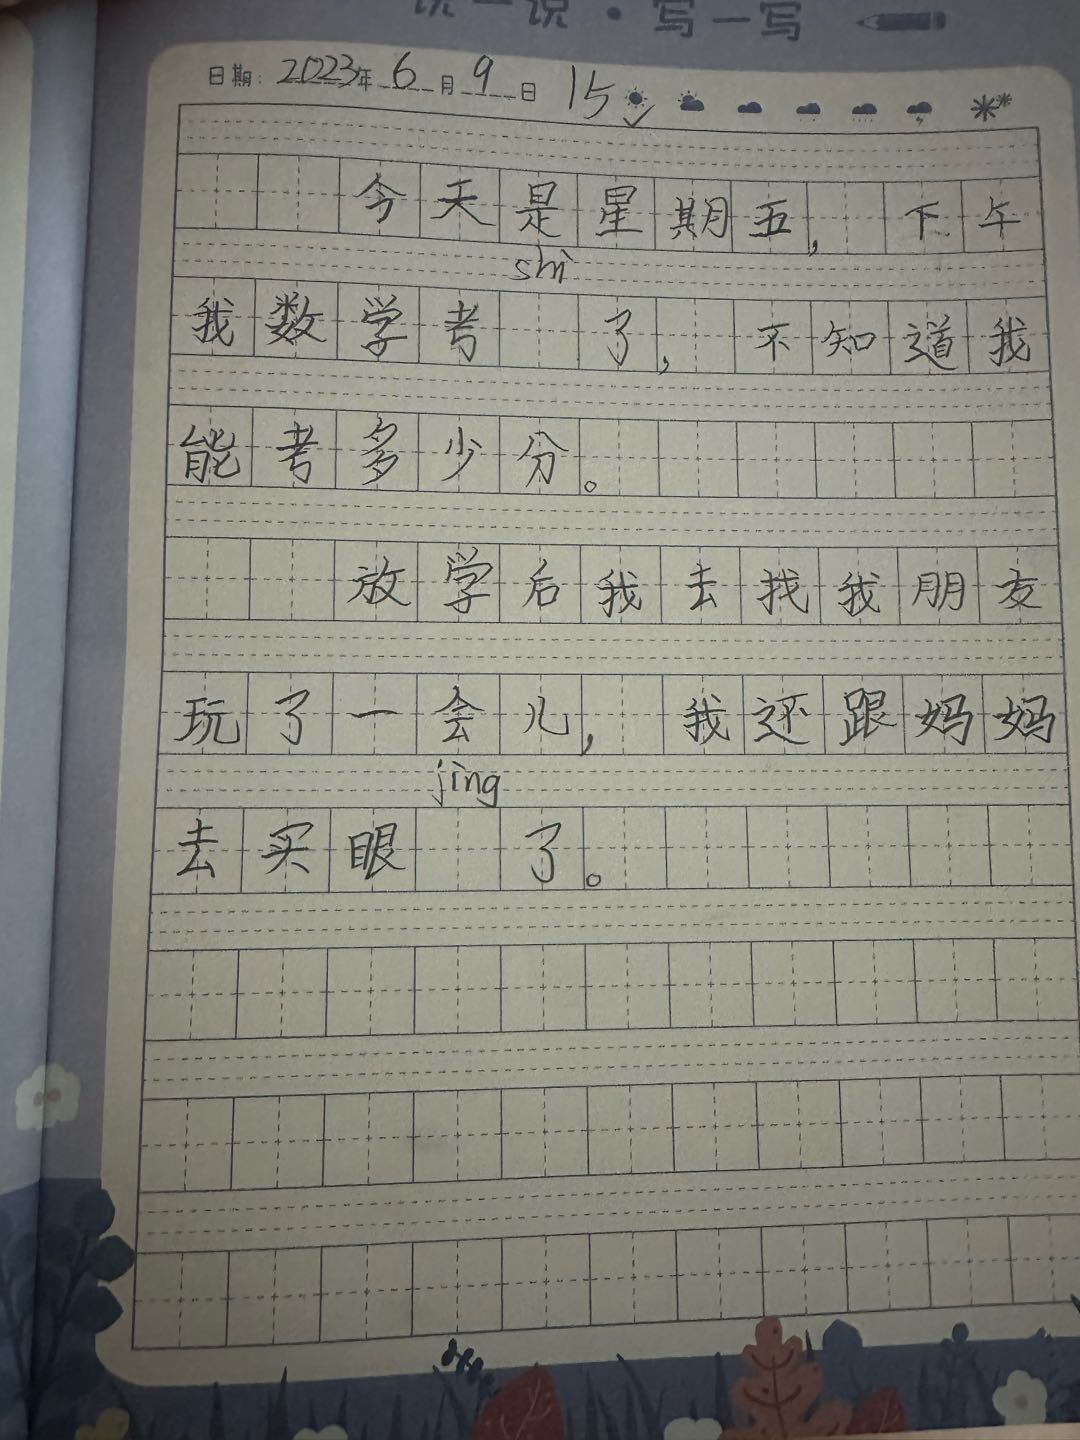 说一说·写一写
日期：2023年6月9日 15
今天是星期五，下午
shì
我数学考 了，不知道我
能考多少分。
放学后我去找我朋友
玩了一会儿，我还跟妈妈
jìng
去买眼 了。